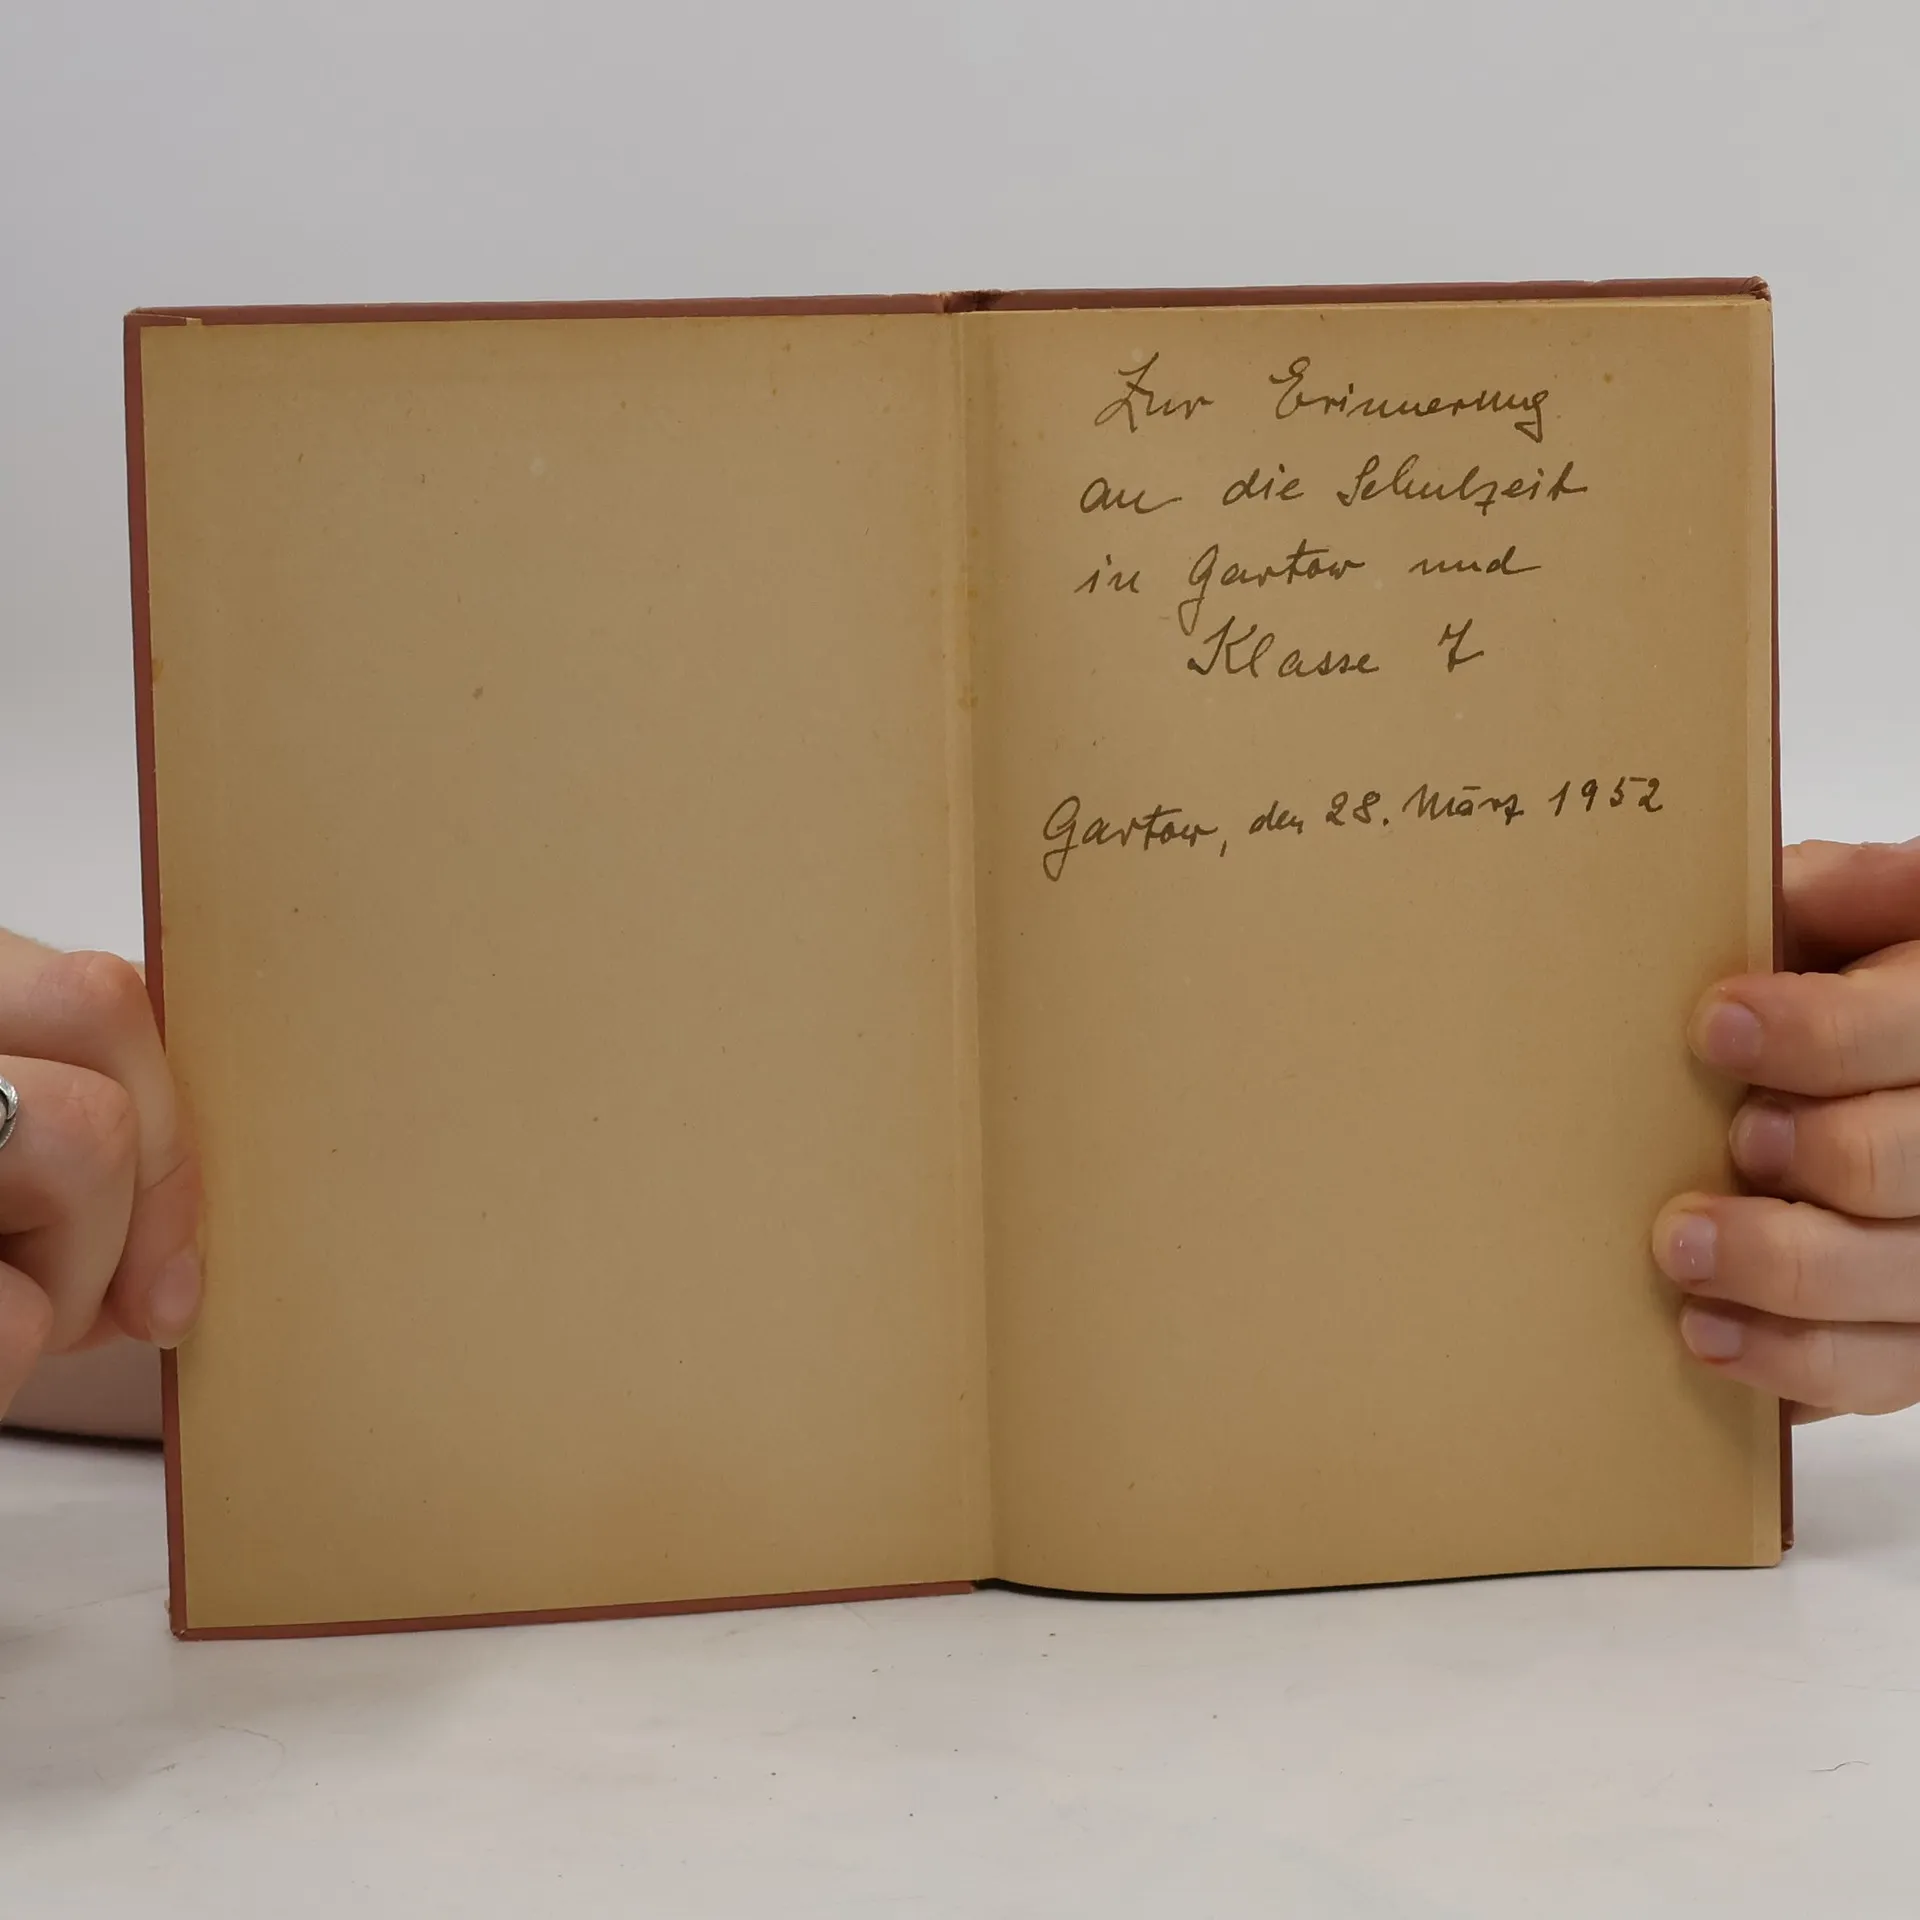 Zur Erinnerung
an die Schulzeit
in Gartow und
Klasse 7
Gartow, den 28. März 1952